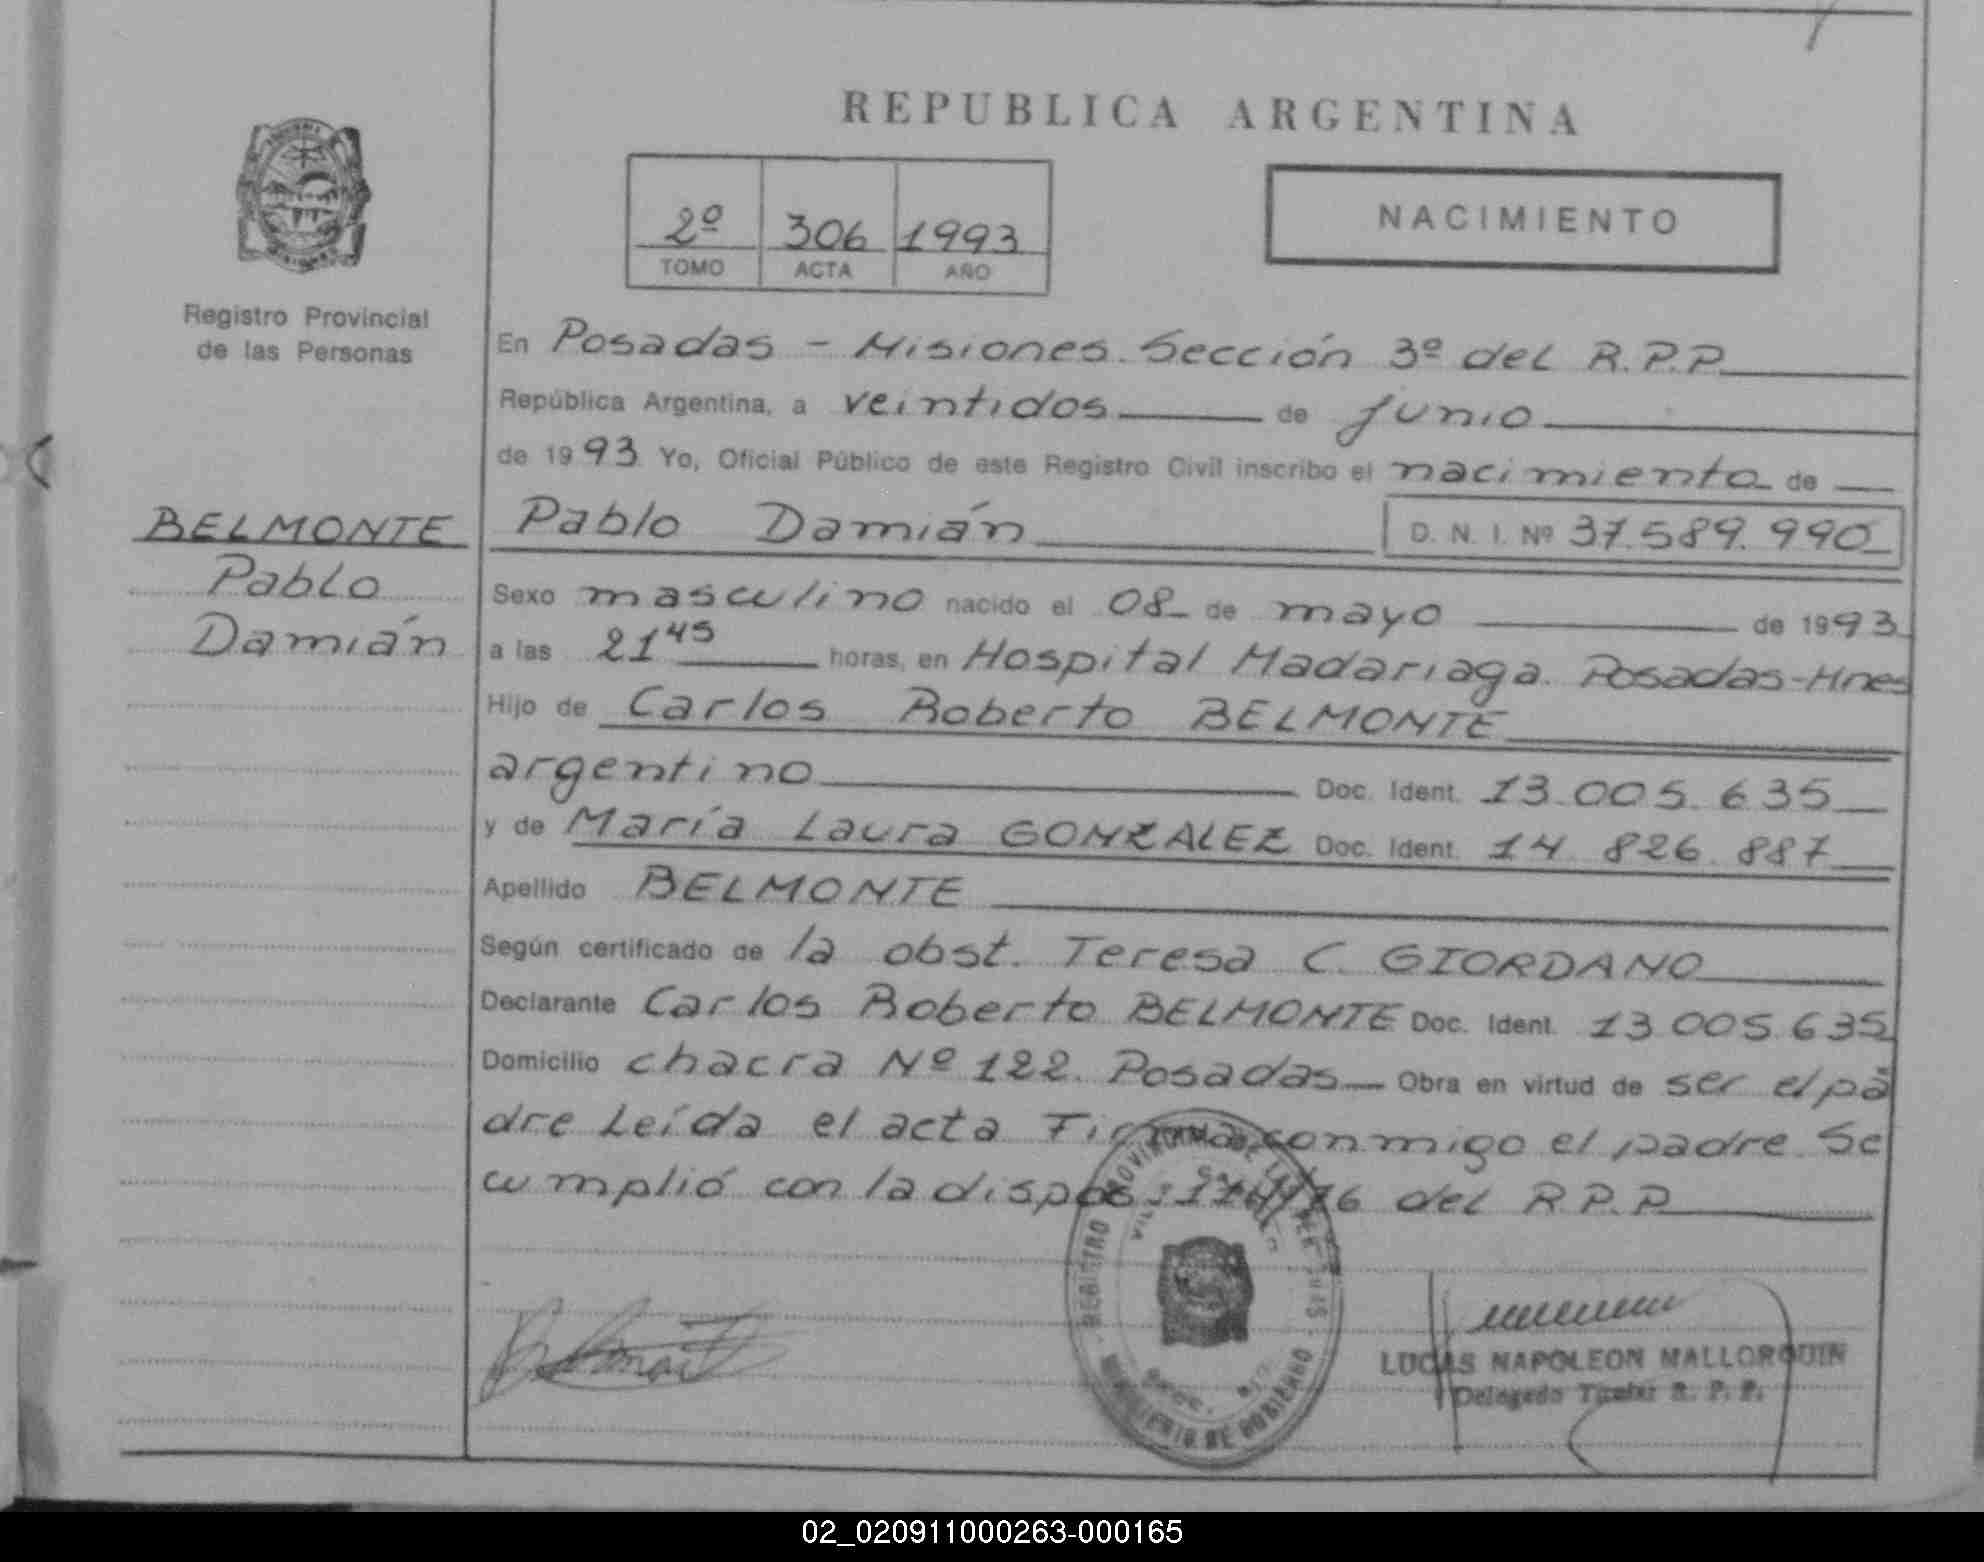 REPUBLICA ARGENTINA
2º 306 1993
TOMO ACTA AÑO
NACIMIENTO
Registro Provincial
de las Personas
BELMONTE
Pablo
Damián
En Posadas - Misiones. Sección 3º del R.P.P.
República Argentina, a veintidos de junio
de 1993 Yo, Oficial Público de este Registro Civil inscribo el nacimiento de
Pablo Damián D. N. I. Nº 37.589.990
Sexo masculino nacido el 08 de mayo de 1993
a las 21 45 horas, en Hospital Madariaga. Posadas-Mnes
Hijo de Carlos Roberto BELMONTE
argentino Doc. Ident. 13.005.635
y de María Laura GONZALEZ Doc. Ident. 14.826.887
Apellido BELMONTE
Según certificado de la obst. Teresa C. GIORDANO
Declarante Carlos Roberto BELMONTE Doc. Ident. 13.005.635
Domicilio chacra Nº 122. Posadas Obra en virtud de ser el pa
dre Leída el acta Firma conmigo el padre. Se
cumplió con la dispos. del R.P.P.
REGISTRO PROVINCIAL DE LAS PERSONAS
MINISTERIO DE GOBIERNO
LUCAS NAPOLEON MALLORQUIN
Delegado Titular R. P. P.
02_020911000263-000165